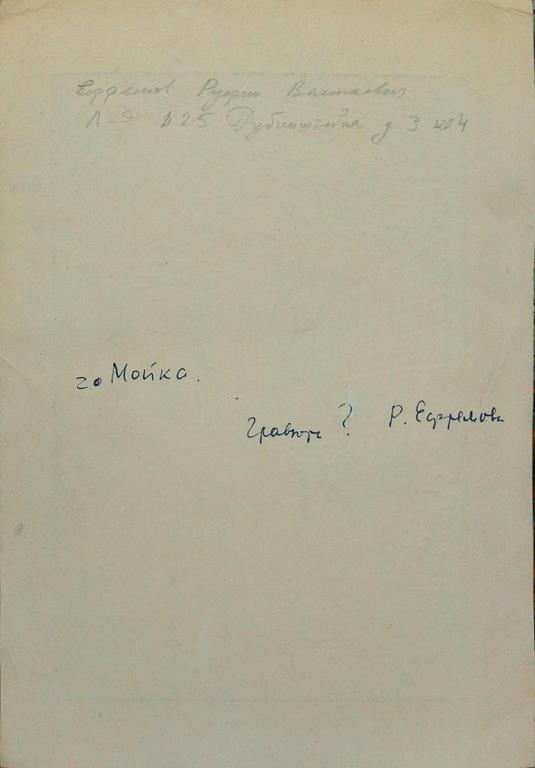 Ефремов Руфин Васильевич
Л-д Д 25 Рубинштейна д 3 кв 4
20 Мойка.
гравюра ? Р. Ефремова